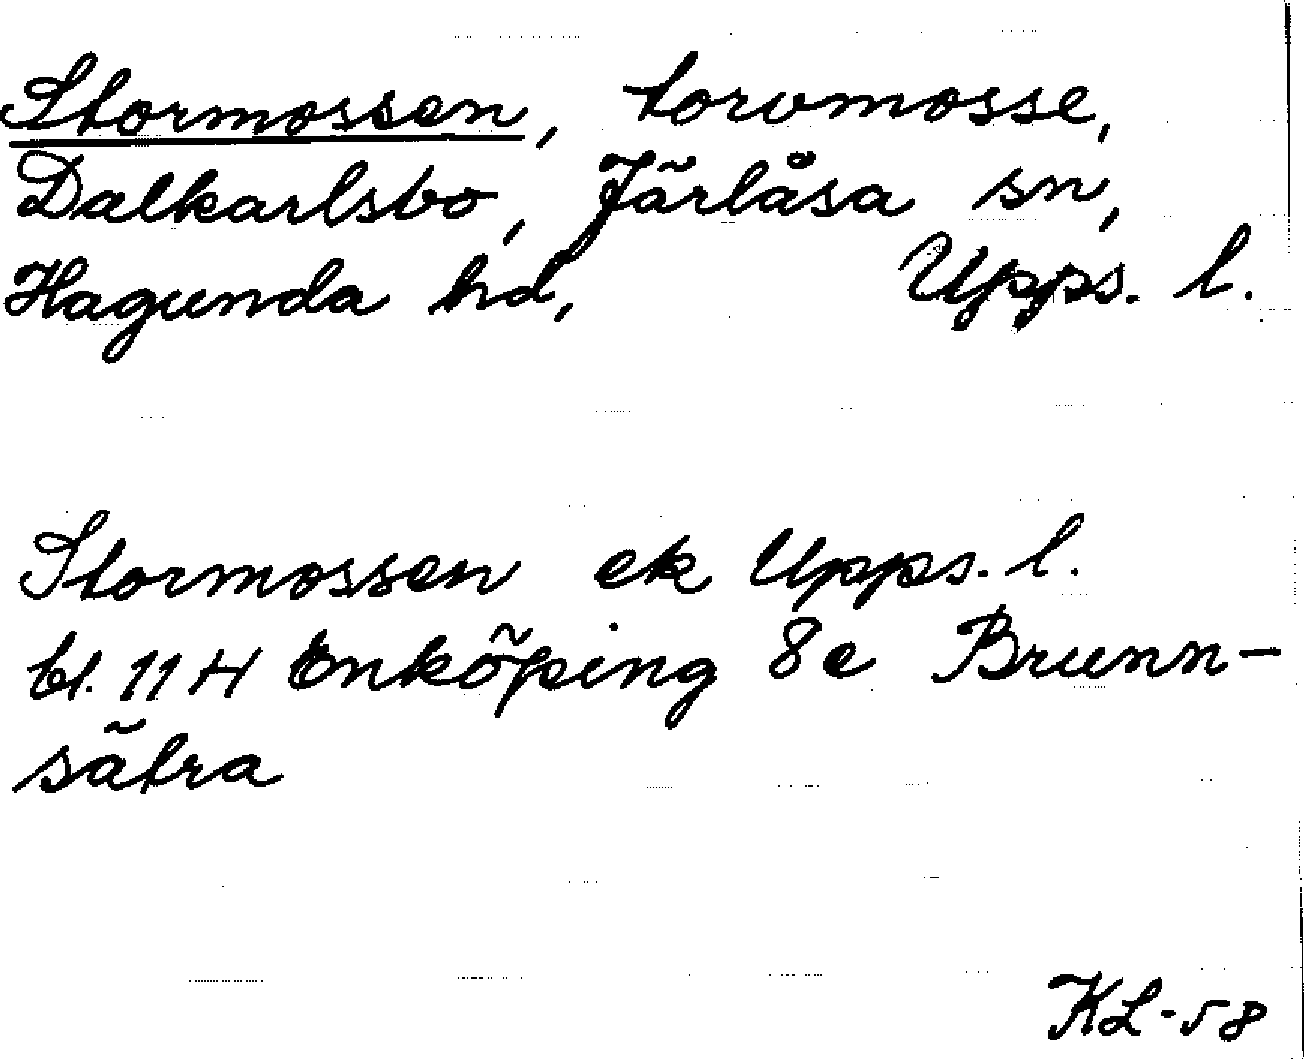 Stormossen, torvmosse,
Dalkarlsbo, Järlåsa sn,
Hagunda hd, Upps. l.
Stormossen ek Upps. l.
bl. 11 H Enköping 8e Brunn-
sätra
KL-58